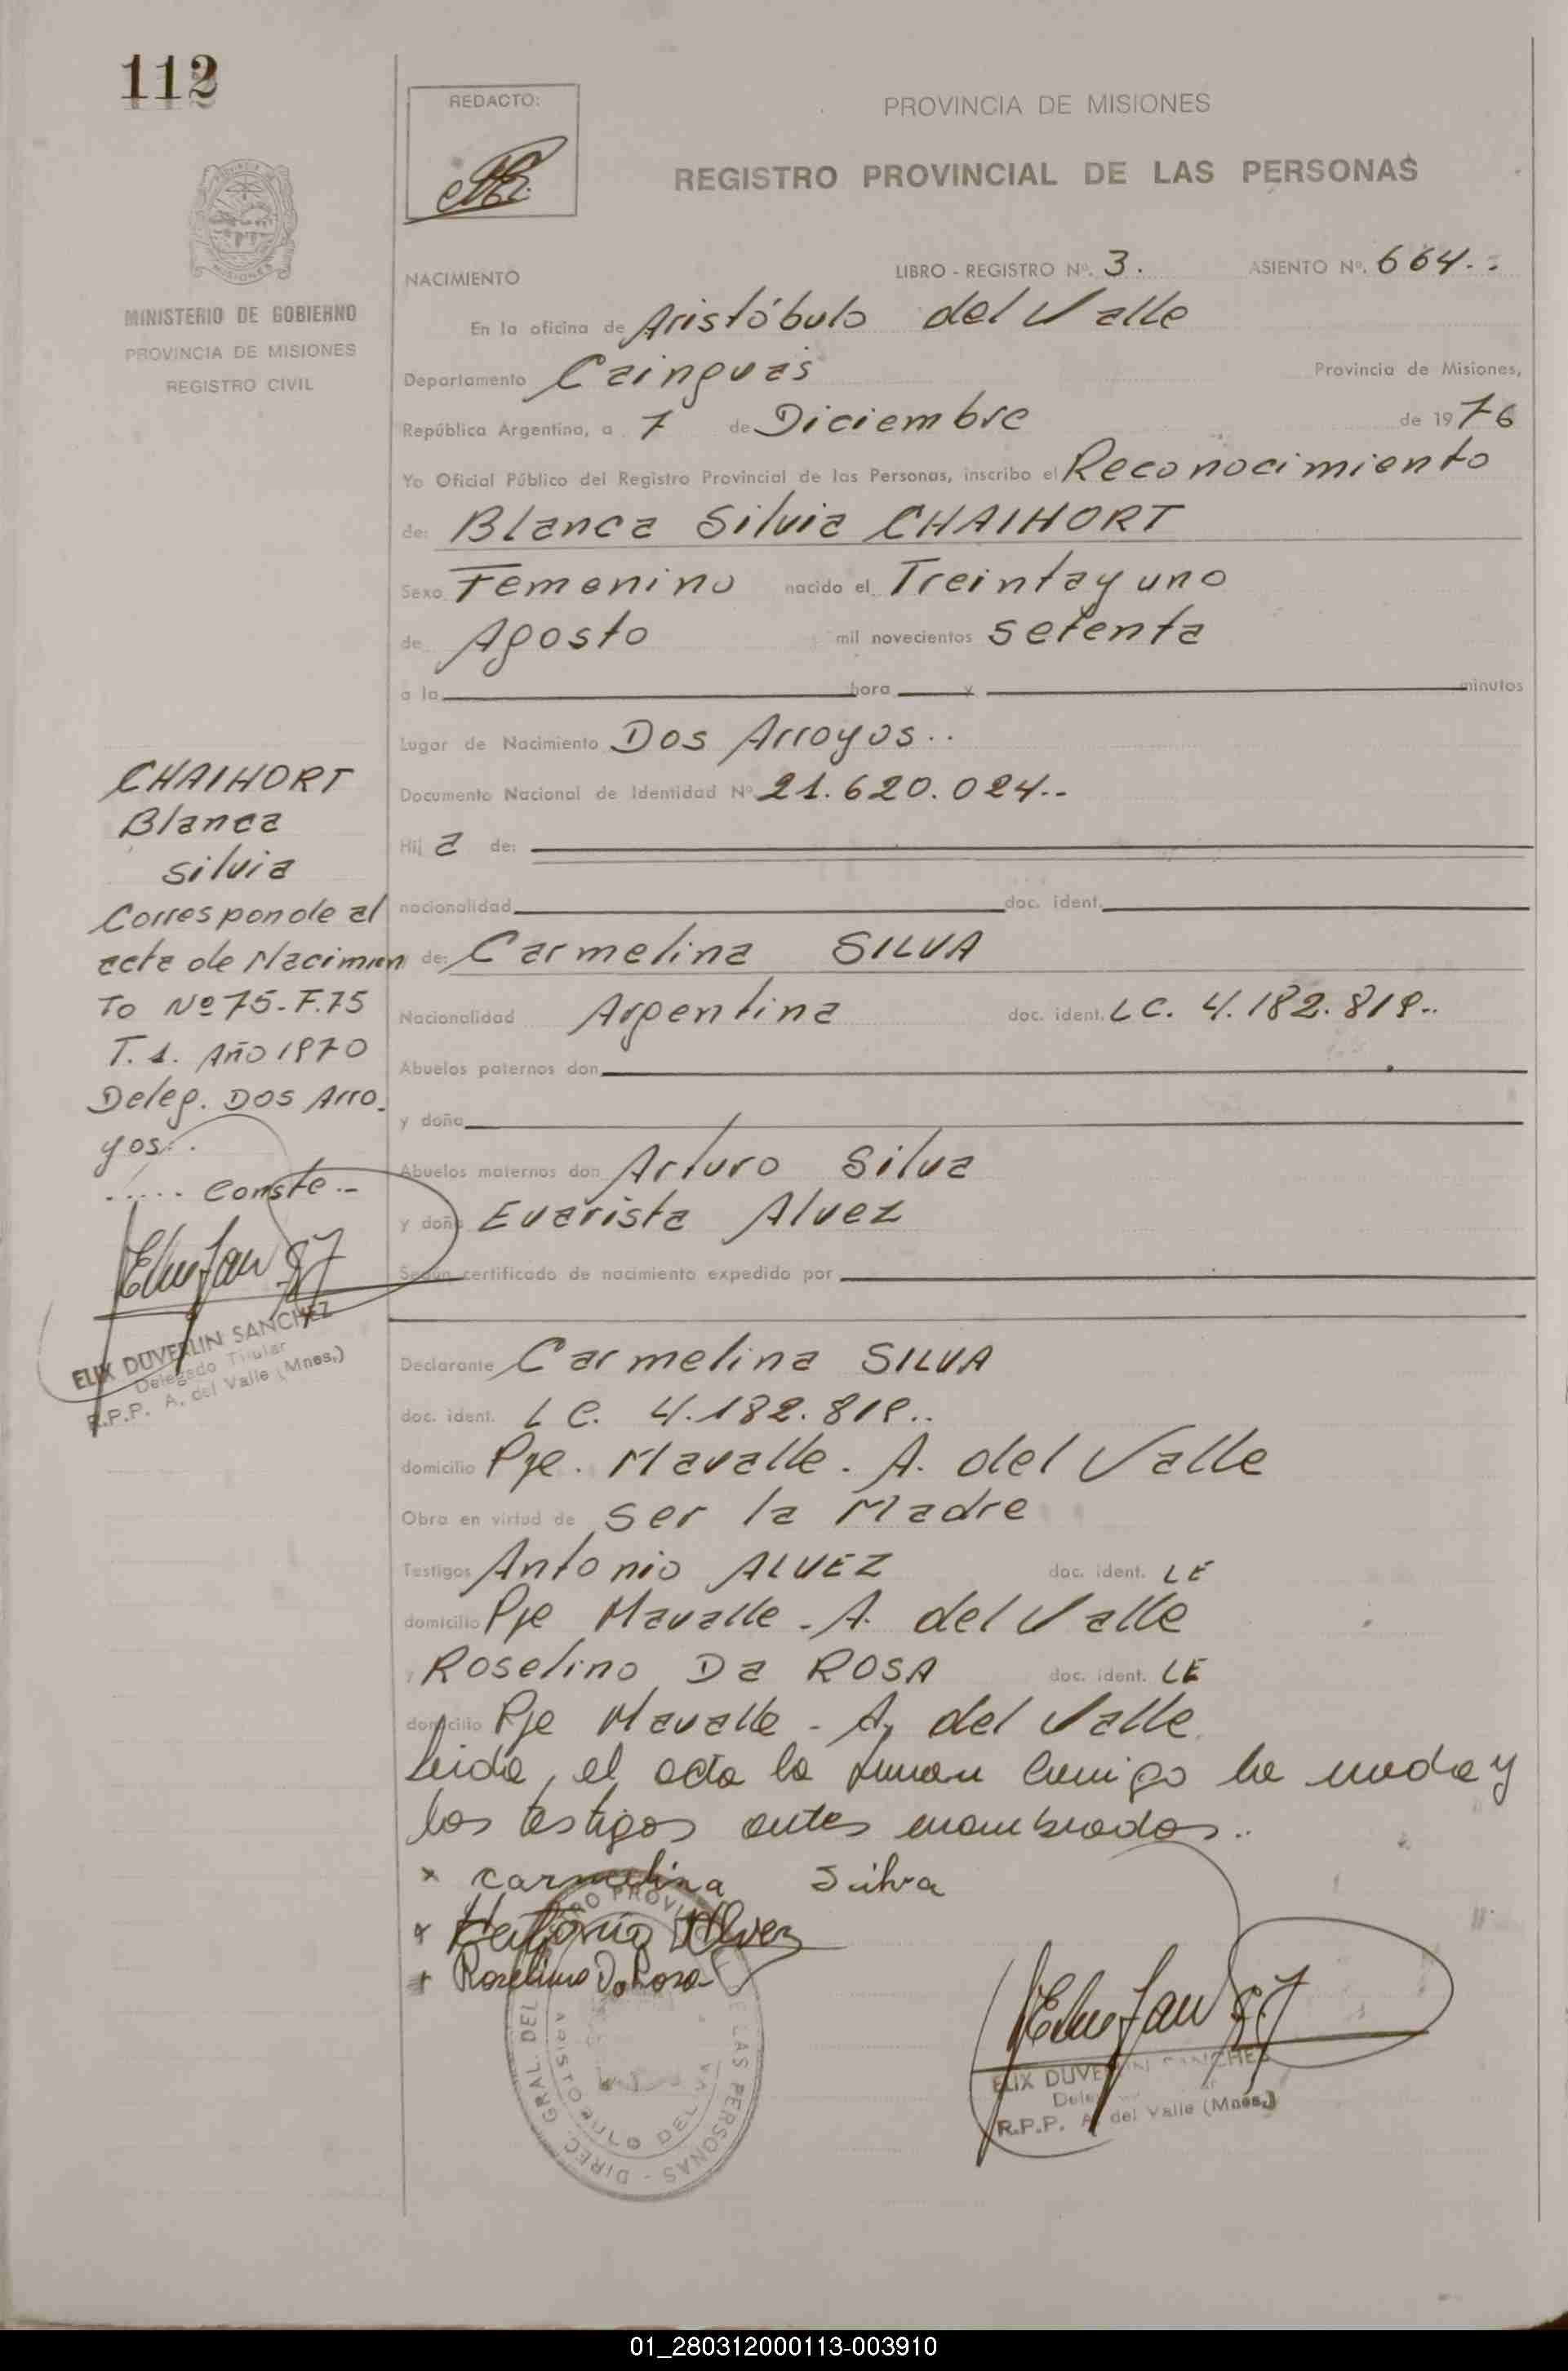 112
MINISTERIO DE GOBIERNO
PROVINCIA DE MISIONES
REGISTRO CIVIL
REDACTO:
PROVINCIA DE MISIONES
REGISTRO PROVINCIAL DE LAS PERSONAS
NACIMIENTO LIBRO - REGISTRO Nº. 3. ASIENTO Nº. 664..
En la oficina de Aristóbulo del Valle
Departamento Cainguás Provincia de Misiones,
República Argentina, a 7 de Diciembre de 1976
Yo Oficial Público del Registro Provincial de las Personas, inscribo el Reconocimiento
de: Blanca Silvia CHAIHORT
Sexo Femenino nacido el Treinta y uno
de Agosto mil novecientos setenta
a la hora y minutos
Lugar de Nacimiento Dos Arroyos..
Documento Nacional de Identidad Nº 21.620.024..
Hij a de:
nacionalidad doc. ident.
de: Carmelina SILVA
Nacionalidad Argentina doc. ident. LC. 4.182.819..
Abuelos paternos don
y doña
Abuelos maternos don Arturo Silva
y doña Evarista Alvez
Según certificado de nacimiento expedido por
Declarante Carmelina SILVA
doc. ident. LC. 4.182.819..
domicilio Pje. Mavalle. A. del Valle
Obra en virtud de ser la Madre
Testigos Antonio ALVEZ doc. ident. LE
domicilio Pje Mavalle - A. del Valle
y Roselino Da ROSA doc. ident. LE
domicilio Pje Mavalle - A. del Valle
leida, el acta la firman conmigo la madre y
los testigos antes nombrados..
x Carmelina Silva
x Antonio Alvez
x Roselino Da Rosa
DIREC. GRAL. DEL REGISTRO PROVINCIAL DE LAS PERSONAS -
ARISTOBULO DEL VALLE
ELIX DUVERLIN SANCHEZ
R.P.P. A. del Valle (Mnes.)
CHAIHORT
Blanca
Silvia
Corresponde al
acta de Nacimien
To Nº 75-F.75
T. 1. Año 1970
Deleg. Dos Arro-
yos..
..... Conste.-
ELIX DUVERLIN SANCHEZ
Delegado Titular
R.P.P. A. del Valle (Mnes.)
01_280312000113-003910